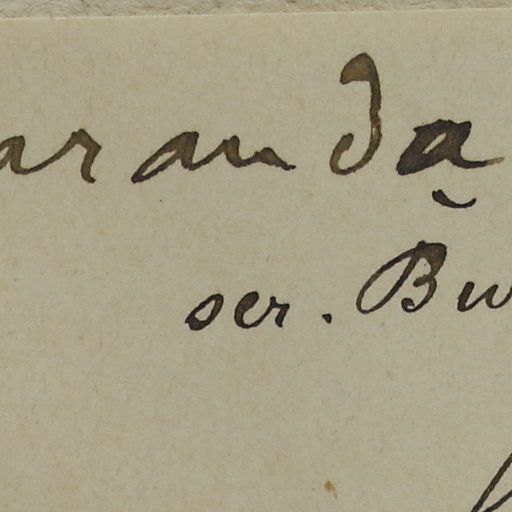 aranda
ser. Bu